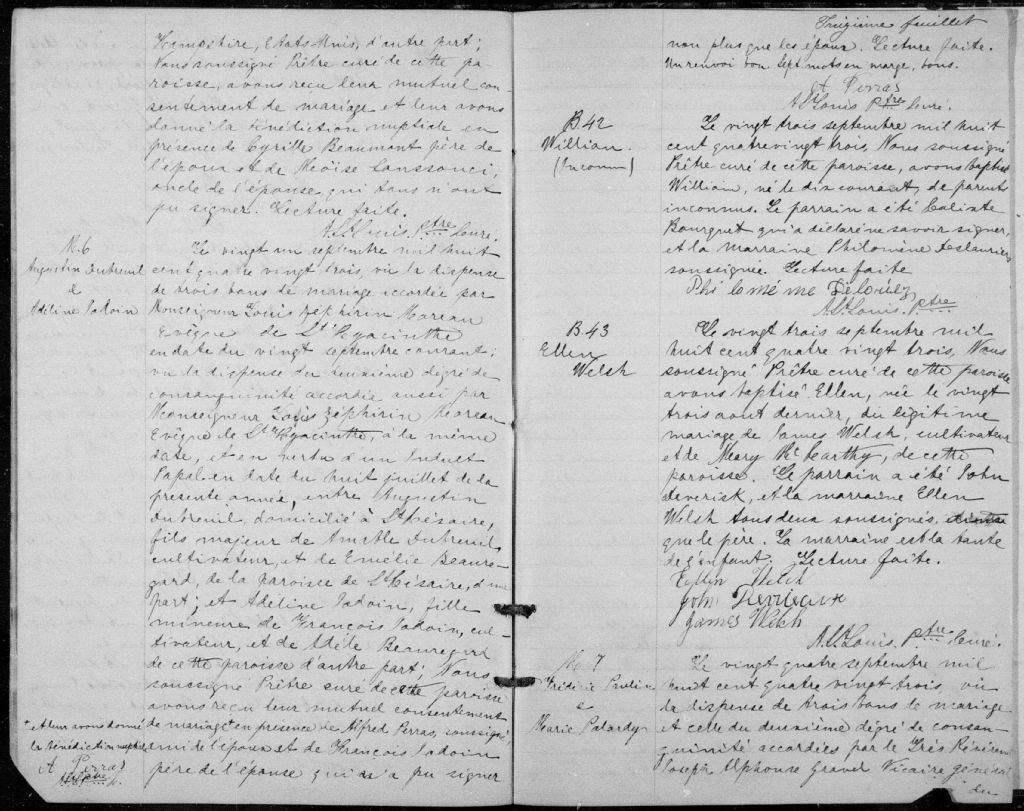 Hampshire, Etats Unis, d'autre part;
Nous soussigné Prêtre curé de cette pa-
roisse, avons reçu leur mutuel con-
sentement de mariage et leur avons
donné la bénédiction nuptiale en
présence de Cyrille Beaumont père de
l'époux et de Moïse Sanssouci,
oncle de l'épouse qui tous n'ont
pu signer. Lecture faite.
A. St Louis Ptre Curé.
M. 6
Augustin Dubreuil
&
Adéline Jadoin
Le vingt un septembre mil huit
cent quatre vingt trois, vu la dispense
de trois bans de mariage accordée par
Monseigneur Louis Zéphirin Moreau
Evêque de St Hyacinthe
en date du vingt septembre courant;
vu la dispense du deuxième dégré de
consanguinité accordée aussi par
Monseigneur Louis Zéphirin Moreau
Evêque de St Hyacinthe, à la même
date, et en vertu d'un Indult
Papal en date du huit juillet de la
présente année, entre Augustin
Dubreuil domicilié à St Césaire,
fils majeur de Amable Dubreuil
cultivateur, et de Emélie Beaure-
gard, de la paroisse de St Césaire, d'une
part; et Adéline Jadoin, fille
mineure de François Jadoin, cul-
tivateur, et de Adèle Beauregard
de cette paroisse d'autre part; Nous
soussigné Prêtre curé de cette paroisse
avons reçu leur mutuel consentement
de mariage + en présence de Alfred Perras, soussigné,
ami de l'époux et de François Jadoin
père de l'épouse qui n'a pu signer
+ et leur avons donné
la bénédiction nuptiale
A Perras
Treizième feuillet
non plus que les époux. Lecture faite.
Un renvoi bon. Sept mots en marge, bons.
A Perras
A. St Louis Ptre Curé.
B. 42
William
(Inconnu)
Le vingt trois septembre mil huit
cent quatre vingt trois, Nous soussigné
Prêtre curé de cette paroisse, avons baptisé
William, né le dix courant, de parents
inconnus. Le parrain a été Calixte
Bourquet qui a déclaré ne savoir signer,
et la marraine Philomène Deslauriers
soussignée. Lecture faite
Philomème
A. St Louis. Ptre
B. 43
Ellen
Welsh
Le vingt trois septembre mil
huit cent quatre vingt trois, Nous
soussigné Prêtre curé de cette paroisse
avons baptisé Ellen, née le vingt
trois aout dernier, du légitime
mariage de James Welsh, cultivateur
et de Mary Mc Cearthy, de cette
paroisse. Le parrain a été John
Leverisk, et la marraine Ellen
Welsh tous deux soussignés,
que le père. La marraine est la tante
de l'enfant. Lecture faite.
Ellin Welch
John
James Welch
A. St Louis Ptre Curé.
M. 7
Frédéric Paulin
&
Marie Palardy
Le vingt quatre septembre mil
huit cent quatre vingt trois, vu
la dispense de trois bans de mariage
et celle du deuxième dégré de consan-
guinité accordées par le Très Révérend
Joseph Alphonse Gravel Vicaire général
du